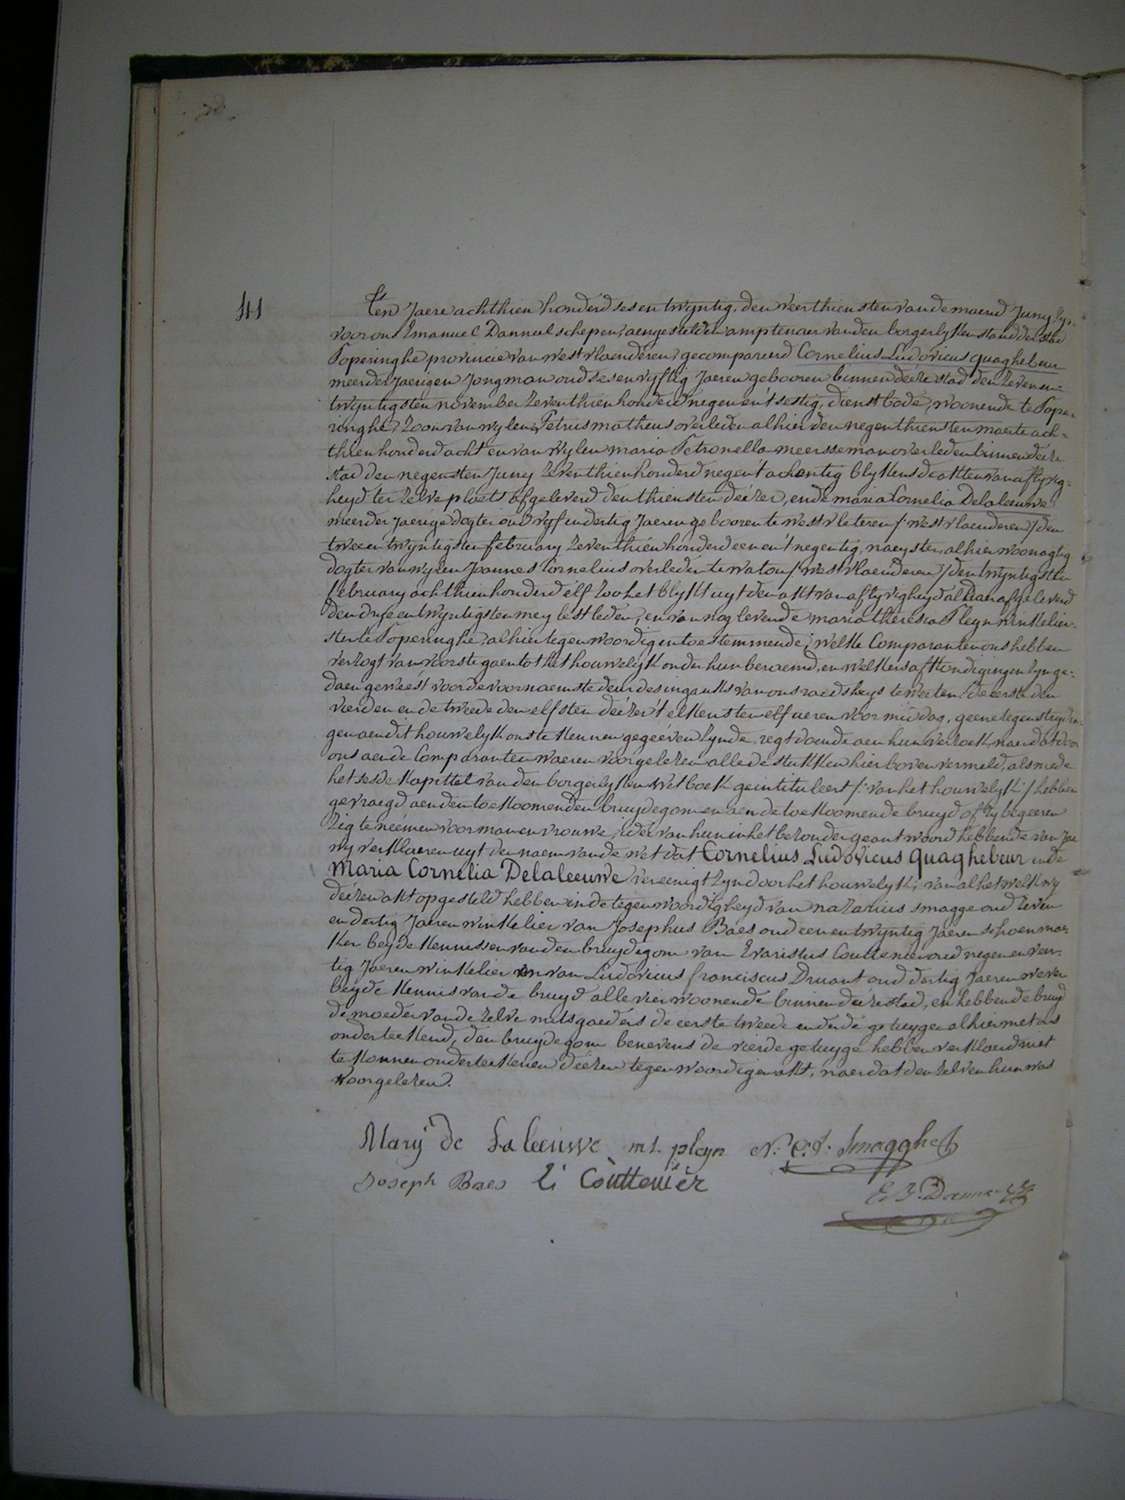 41
Ten Jaere achthien honderd sesentwyntig, den veerthiensten van de maend Juny
voor ons Emanuel Danneel schepen aengestelden amptenaer van den borgerlyken stand der stad
Poperinghe provincie van westvlaenderen, gecompareerd Cornelius Ludovicus Quaghebeur
meerderjaerigen Jongman oud sesenvyftig Jaeren gebooren binnen deéze stad den zevenen-
twyntigsten november zeventhien honderd negenen't sestig, dienstbode, woonende te Pope-
ringhe, Zoon van wylen Petrus matheus overleden alhier den negenthiensten maerte ach-
thien honderd acht en van wylen maria Petronella meersseman overleden binnen deéze
stad den negensten Juny zeventhien honderd negen't achentig blykens de akten van aflyvig-
heyd ter zelve plaets afgeleverd den thiensten deézer, ende maria Cornelia Delaleeuwe
meerderjaerige dogter oud vyfendertig Jaeren gebooren te westvleteren (westvlaenderen) den
tweeentwyntigsten february zeventhien honderd eenen't negentig, naeyster, alhier woonagtig
dogter van wylen Joannes Cornelius overleden te watou (westvlaenderen) den twyntigsten
february achthien honderd elf zoo het blykt uyt den akt van aflyvigheyd aldaer afgeleverd
den dryeentwyntigsten mey lestleden, en van nog levende maria theresia Pleyn winkelier-
ster te Poperinghe, alhier tegenwoordig en toestemmende; welke Comparanten ons hebben
verzogt van voorts te gaen tot het houwelyk onder hun beraemd, en welkers afkondigingen zyn ge-
daen geweest voor de voornaemste deur des ingankx van ons raedshuys te weeten: de eerste den
vierden en de tweede den elfsten deézer t'elkens ten elf ueren voormiddag, geene tegenstryding
genaemd't houwelyk ons te kennen gegeéven zynde, regt doende aen hun verzoek, naer dat door
ons aen de Comparanten waeren voorgelezen alle de stukken hier boven vermeld, alsmede
het sesde Kapittel van den borgerlyken wetboek geintituleert (van het houwelyk) hebben
gevraegd aen den toekoomenden bruydegom en aen de toekoomende bruyd of zy begeeren
zig te neémen voor man en vrouwe, ieder van hun in het bezonder geantwoord hebbende van Jae
wy verklaeren uyt den naem van de wet dat Cornelius Ludovicus Quaghebeur ende
Maria Cornelia Delaleeuwe vereenigt zyn door het houwelyk; van al het welk wy
deézen akt opgesteld hebben in de tegenwoordigheyd van nazarius smagge oud zeven
endertig Jaeren winkelier van Josephus Baes oud eenentwyntig Jaeren schoenmae
ker beyde kennissen van den bruydegom van Evaristus Couttenier oud negenenveer-
tig Jaeren winkelier en van Ludovicus franciscus Druant oud dertig Jaeren wever
beyde kennis van de bruyd alle vier woonende binnen deéze stad, en hebben de bruyd
de moeder van de zelve mitsgaeders de eerste tweede en derde getuygen alhier met ons
onderteekend, den bruydegom benevens de vierde getuyge hebben verklaerd niet
te konnen onderteekenen deézen tegenwoordigen akt, naer dat den zelven hun was
voorgelezen.
Mary de Laleeuwe m t pleyn N: C: J. Smagghe
Joseph Baes E Couttenier
E. J. Danneel